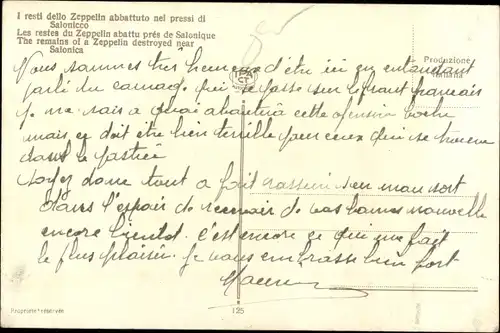 I resti dello Zeppelin abbattuto nei pressi di
Salonicco
Les restes du Zeppelin abattu prés de Salonique
The remains of a Zeppelin destroyed near
Salonica
Produzione
Italiana
Nous sommes très heureux d'être ici en entendant
parlé du carnage qui se passe sur le front français
je ne sais a quoi aboutira cette ofensive boche
mais ça doit être bien terrible pour ceux qui se trouve
dans le
Soyez donc tout a fait rassuré sur mon sort
dans l'espoir de recevoir de vos bonnes nouvelle
encore bientot. c'est encore ce qui me fait
le plus plaisir. je vous embrasse bien fort
Proprieta' riservata
125